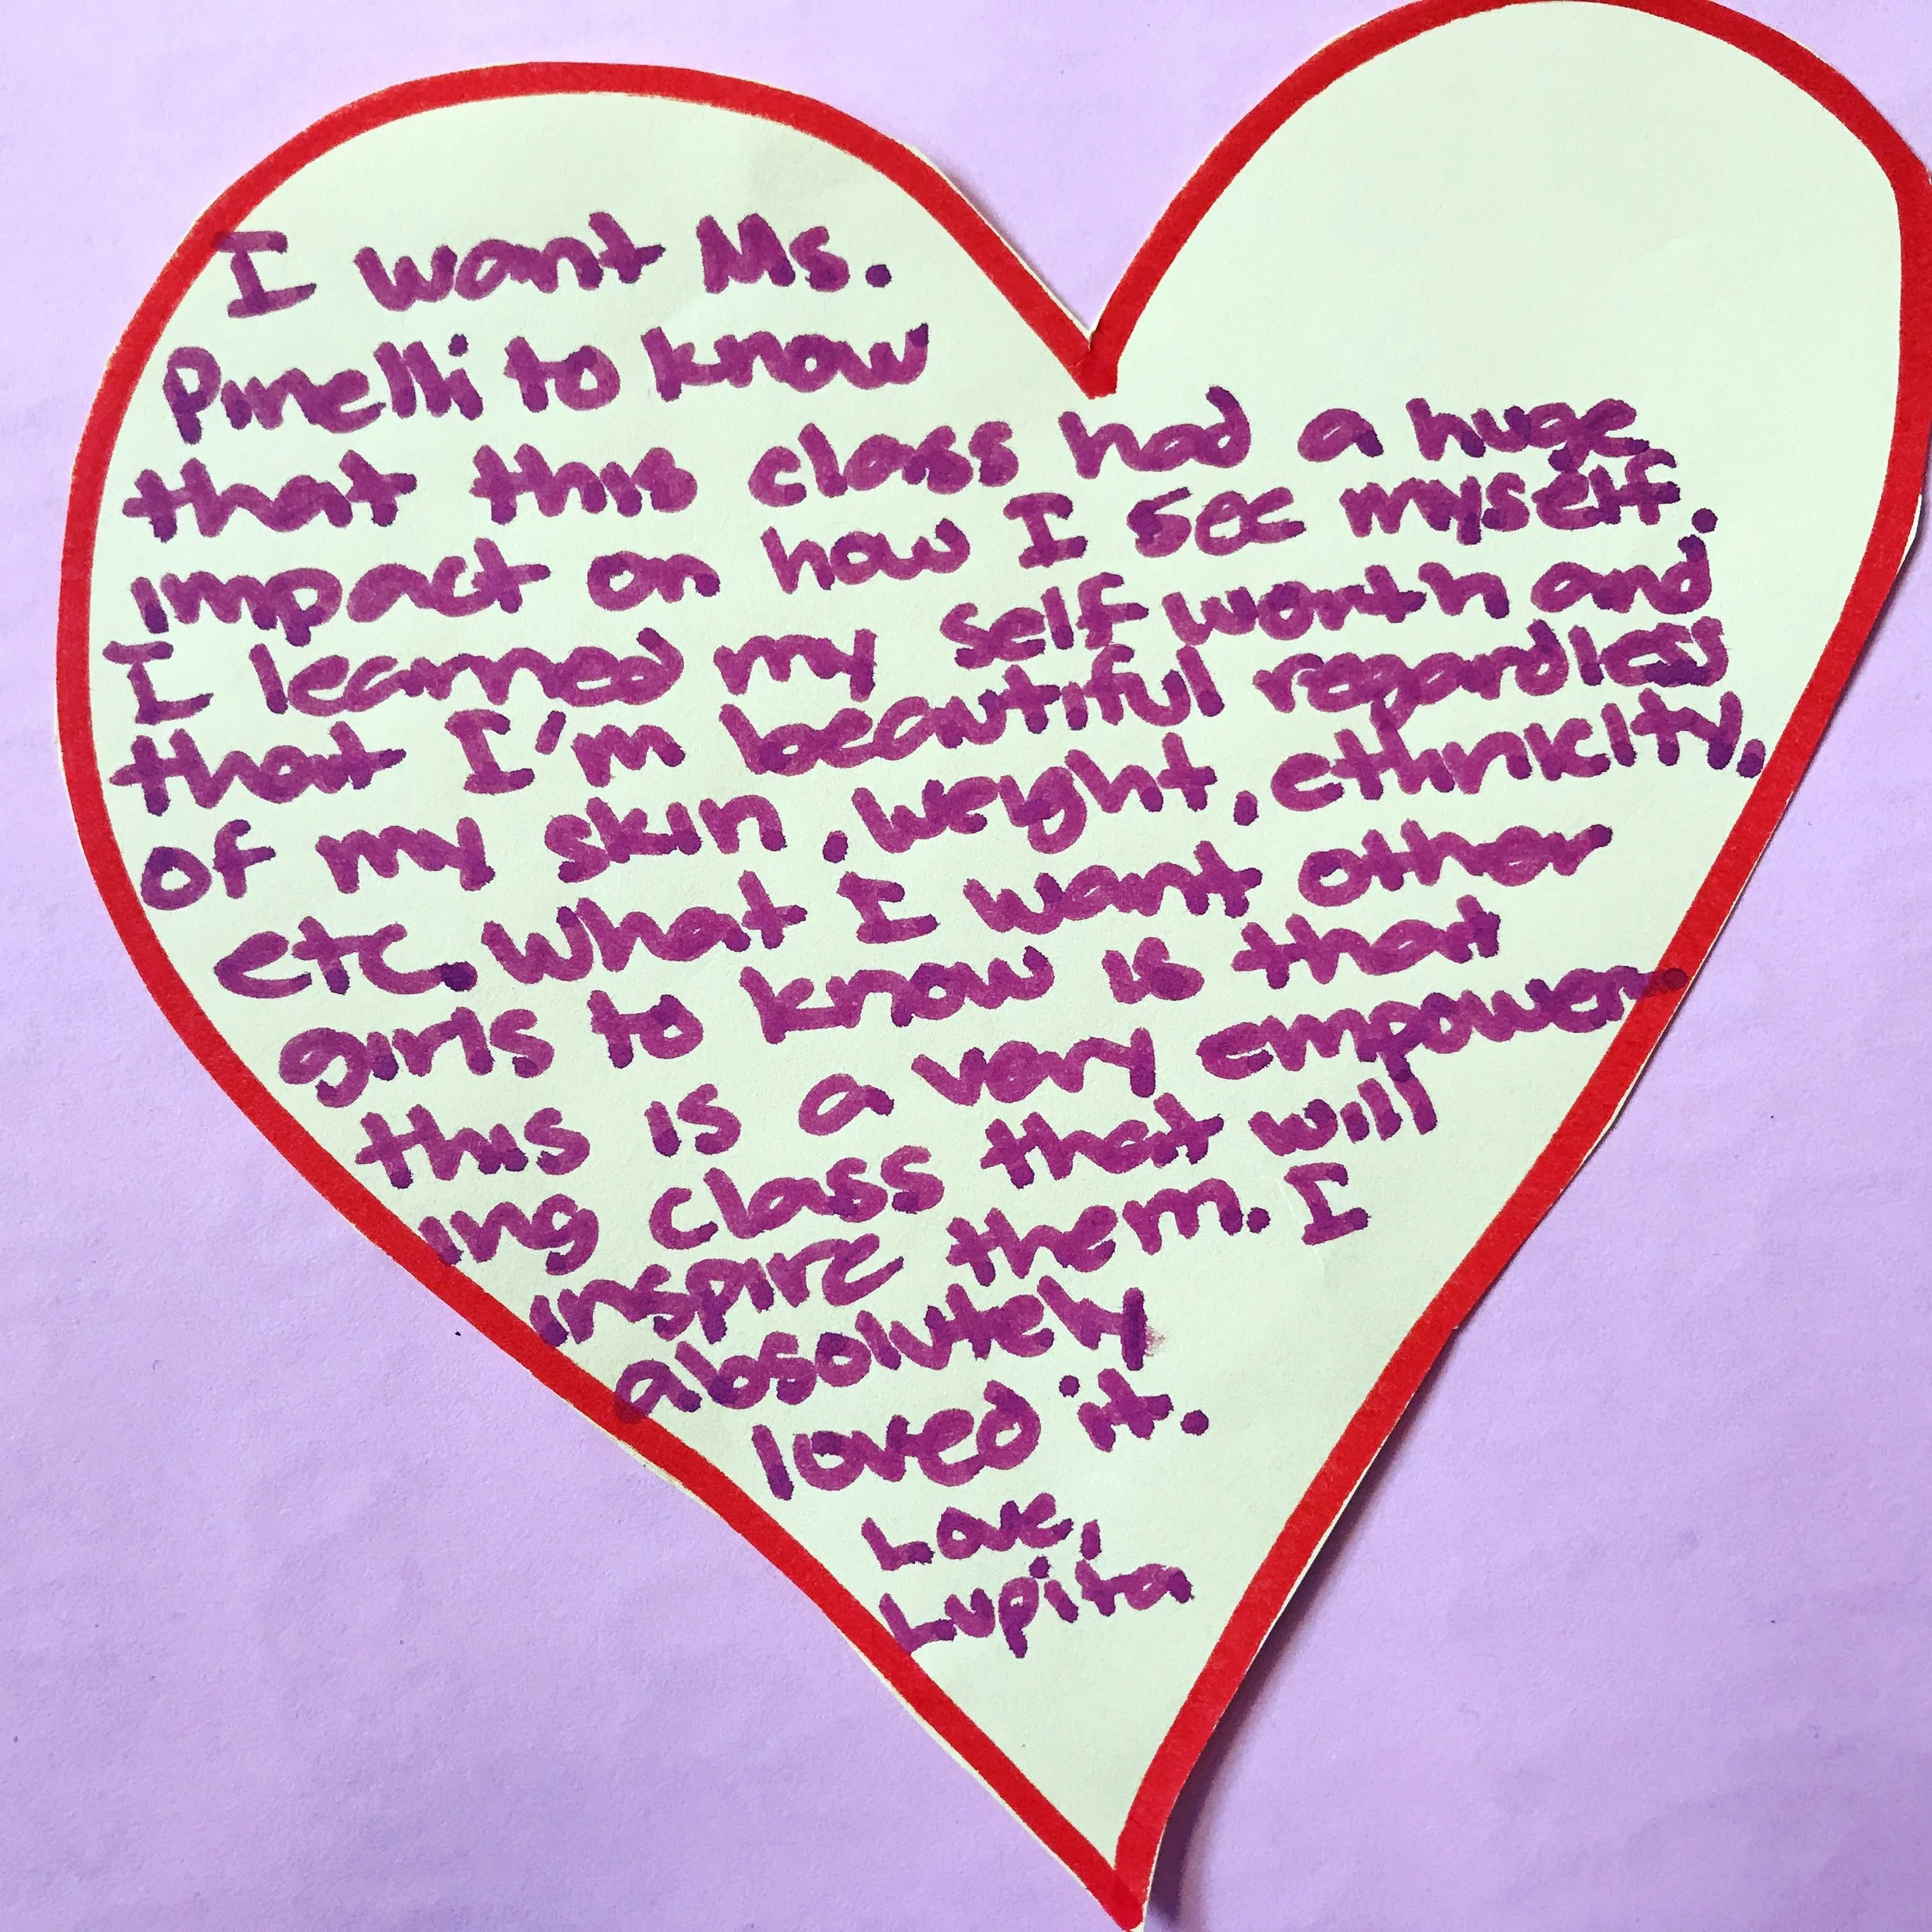 I want Ms.
Pinelli to know
that this class had a huge
impact on how I see myself.
I learned my self worth and
that I'm beautiful regardless
of my skin, weight, ethnicity,
etc. What I want other
girls to know is that
this is a very empower-
ing class that will
inspire them. I
absolutely
loved it.
Love,
Lupita